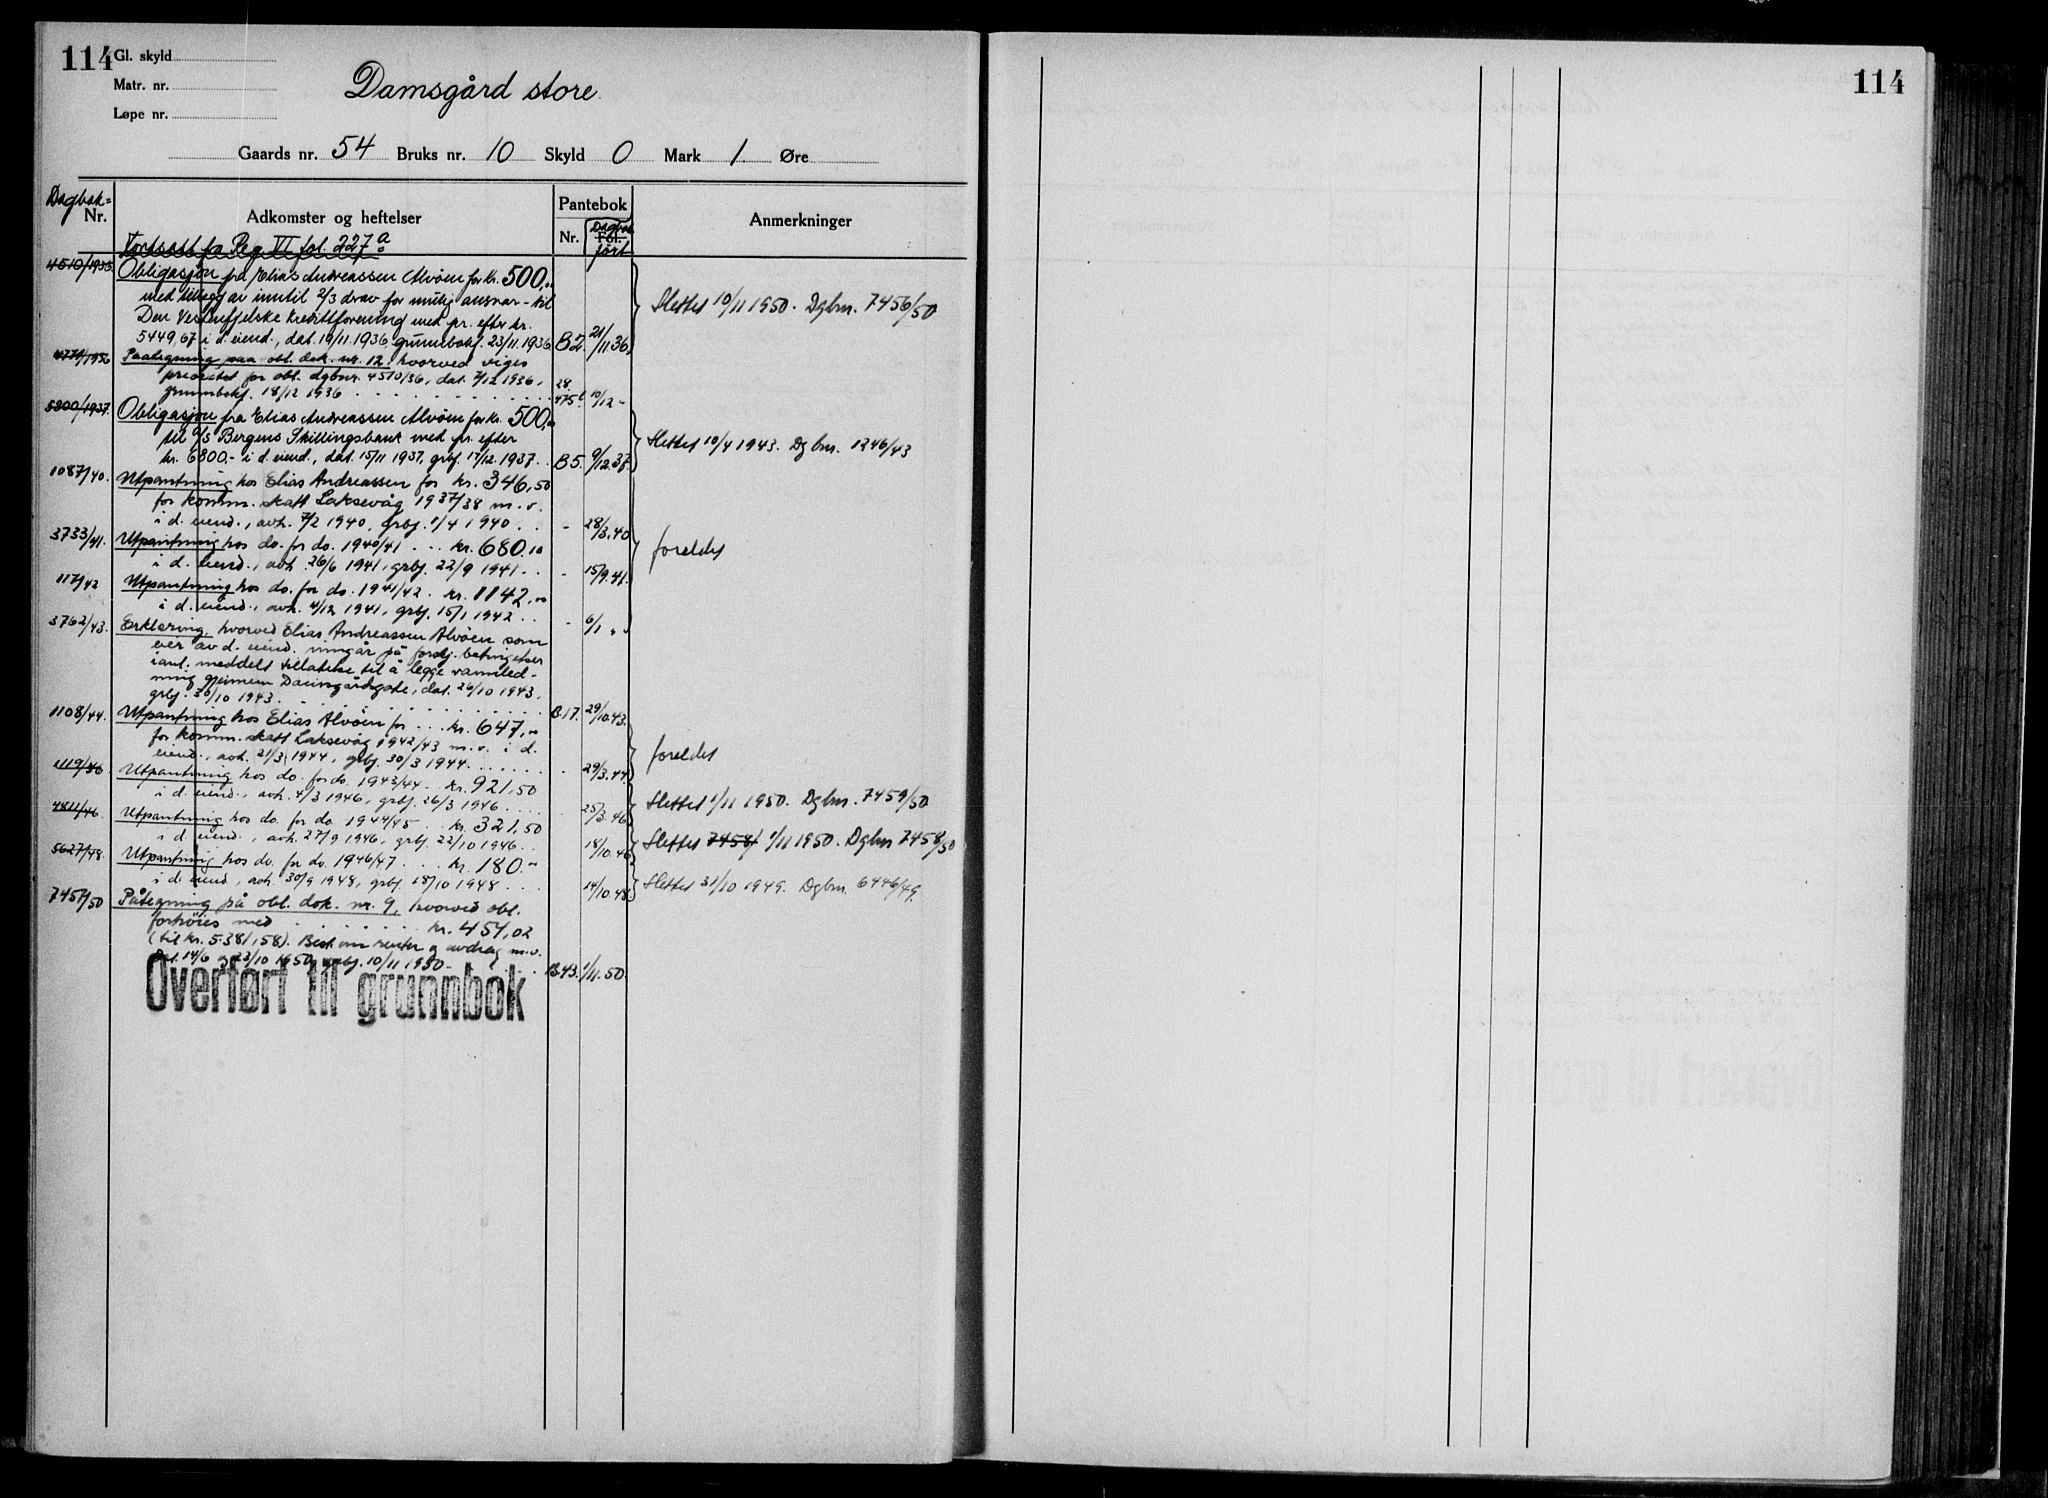 114
Gl. skyld
Matr. nr.
Løpe nr.
Damsgård store
Gaards nr. 54 Bruks nr. 10 Skyld 0 Mark 1 Øre
Dagbok-
Nr.
Adkomster og heftelser
Pantebok
Nr.
Fol.
Dagbok
ført
Anmerkninger
Fortsatt fra Reg. VI fol. 227 a
4510/1936 Obligasjon fra Elias Andreassen Alvøen for kr. 500,00
med tillegg av inntil 2/3 drav for mulig ansvar - til
Den Vestenfjelske Kredittforening med pr. efter kr.
5449,67 i d. eiend., dat. 19/11 1936, grunnbokf. 23/11.1936. B2. 21/11.36.
Slettet 10/11 1950. Dgbnr. 7456/50
4771/1936 Paategning paa obl. dok. nr. 12, hvorved viges
prioritet for obl. dgbnr. 4510/36, dat. 7/12 1936,
grunnbokf. 18/12 1936 28. 475 b 10/12 -
5300/1937. Obligasjon fra Elias Andreassen Alvøen for kr. 500,00
til A/S Bergens Skillingsbank med pr. efter
kr. 6800.- i d. eiend., dat. 15/11 1937, grbf. 17/12.1937. B5. 9/12.37.
Slettet 10/4 1943. Dgbnr. 1246/43
1087/40. Utpantning hos Elias Andreassen for kr. 346,50
for komm. skatt Laksevåg 1937/38 m.v.
i d. eiend., avh. 7/2 1940, grbf. 1/4 1940 . . - 28/3.40
3733/41. Utpantning hos do. for do. 1940/41 . . . kr. 680.10
i d. eiend., avh. 26/6 1941, grbf. 22/9 1941 . . - 15/9.41.
foreldet
117/42 Utpantning hos do. for do. 1941/42 . kr. 1142,00
i d. eiend., avh. 4/12 1941, grbf. 15/1 1942 . . - 6/1 " "
3762/43. Erklæring, hvorved Elias Andreassen Alvøen som
eier av d. eiend. inngår på forskj. betingelser
ianl. meddelt tillatelse til å legge vannled-
ning gjennem Damsgårdsgate, dat. 26/10 1943,
grbf. 30/10 1943. B.17. 29/10.43.
1108/44. Utpantning hos Elias Alvøen for . . . kr. 647,00
for komm. skatt Laksevåg 1942/43 m.v. i d.
eiend., avh. 21/3 1944, grbf. 30/3 1944 . . . . . - 29/3.44.
foreldet
1119/46. Utpantning hos do. for do. 1943/44 . kr. 921,50
i d. eiend., avh. 4/3 1946, grbf. 26/3 1946 . . . . 25/3.46
Slettet 1/11 1950. Dgbnr. 7459/50
4811/46. Utpantning hos do. for do. 1944/45 . . kr. 321,50
i d. eiend., avh. 27/9 1946, grbf. 22/10 1946 . . 18/10.46
Slettet 7458/ 1/11 1950. Dgbnr 7458/50
5627/48. Utpantning hos do. for do. 1946/47 . . . kr. 180.-
i d. eiend., avh. 30/9 1948, grbf. 18/10 1948 . . . . 14/10.48
Slettet 31/10 1949. Dgbnr. 6446/49.
7457/50 Påtegning på obl. dok. nr. 9, hvorved obl.
forhøies med . . . . . . . kr. 457,02
(til kr. 5.381,58). Best. om renter og avdrag m.v.
Dat. 14/6 og 23/10 1950, grbf. 10/11 1950 - . . . B.43. 1/11.50.
Overført til grunnbok
114